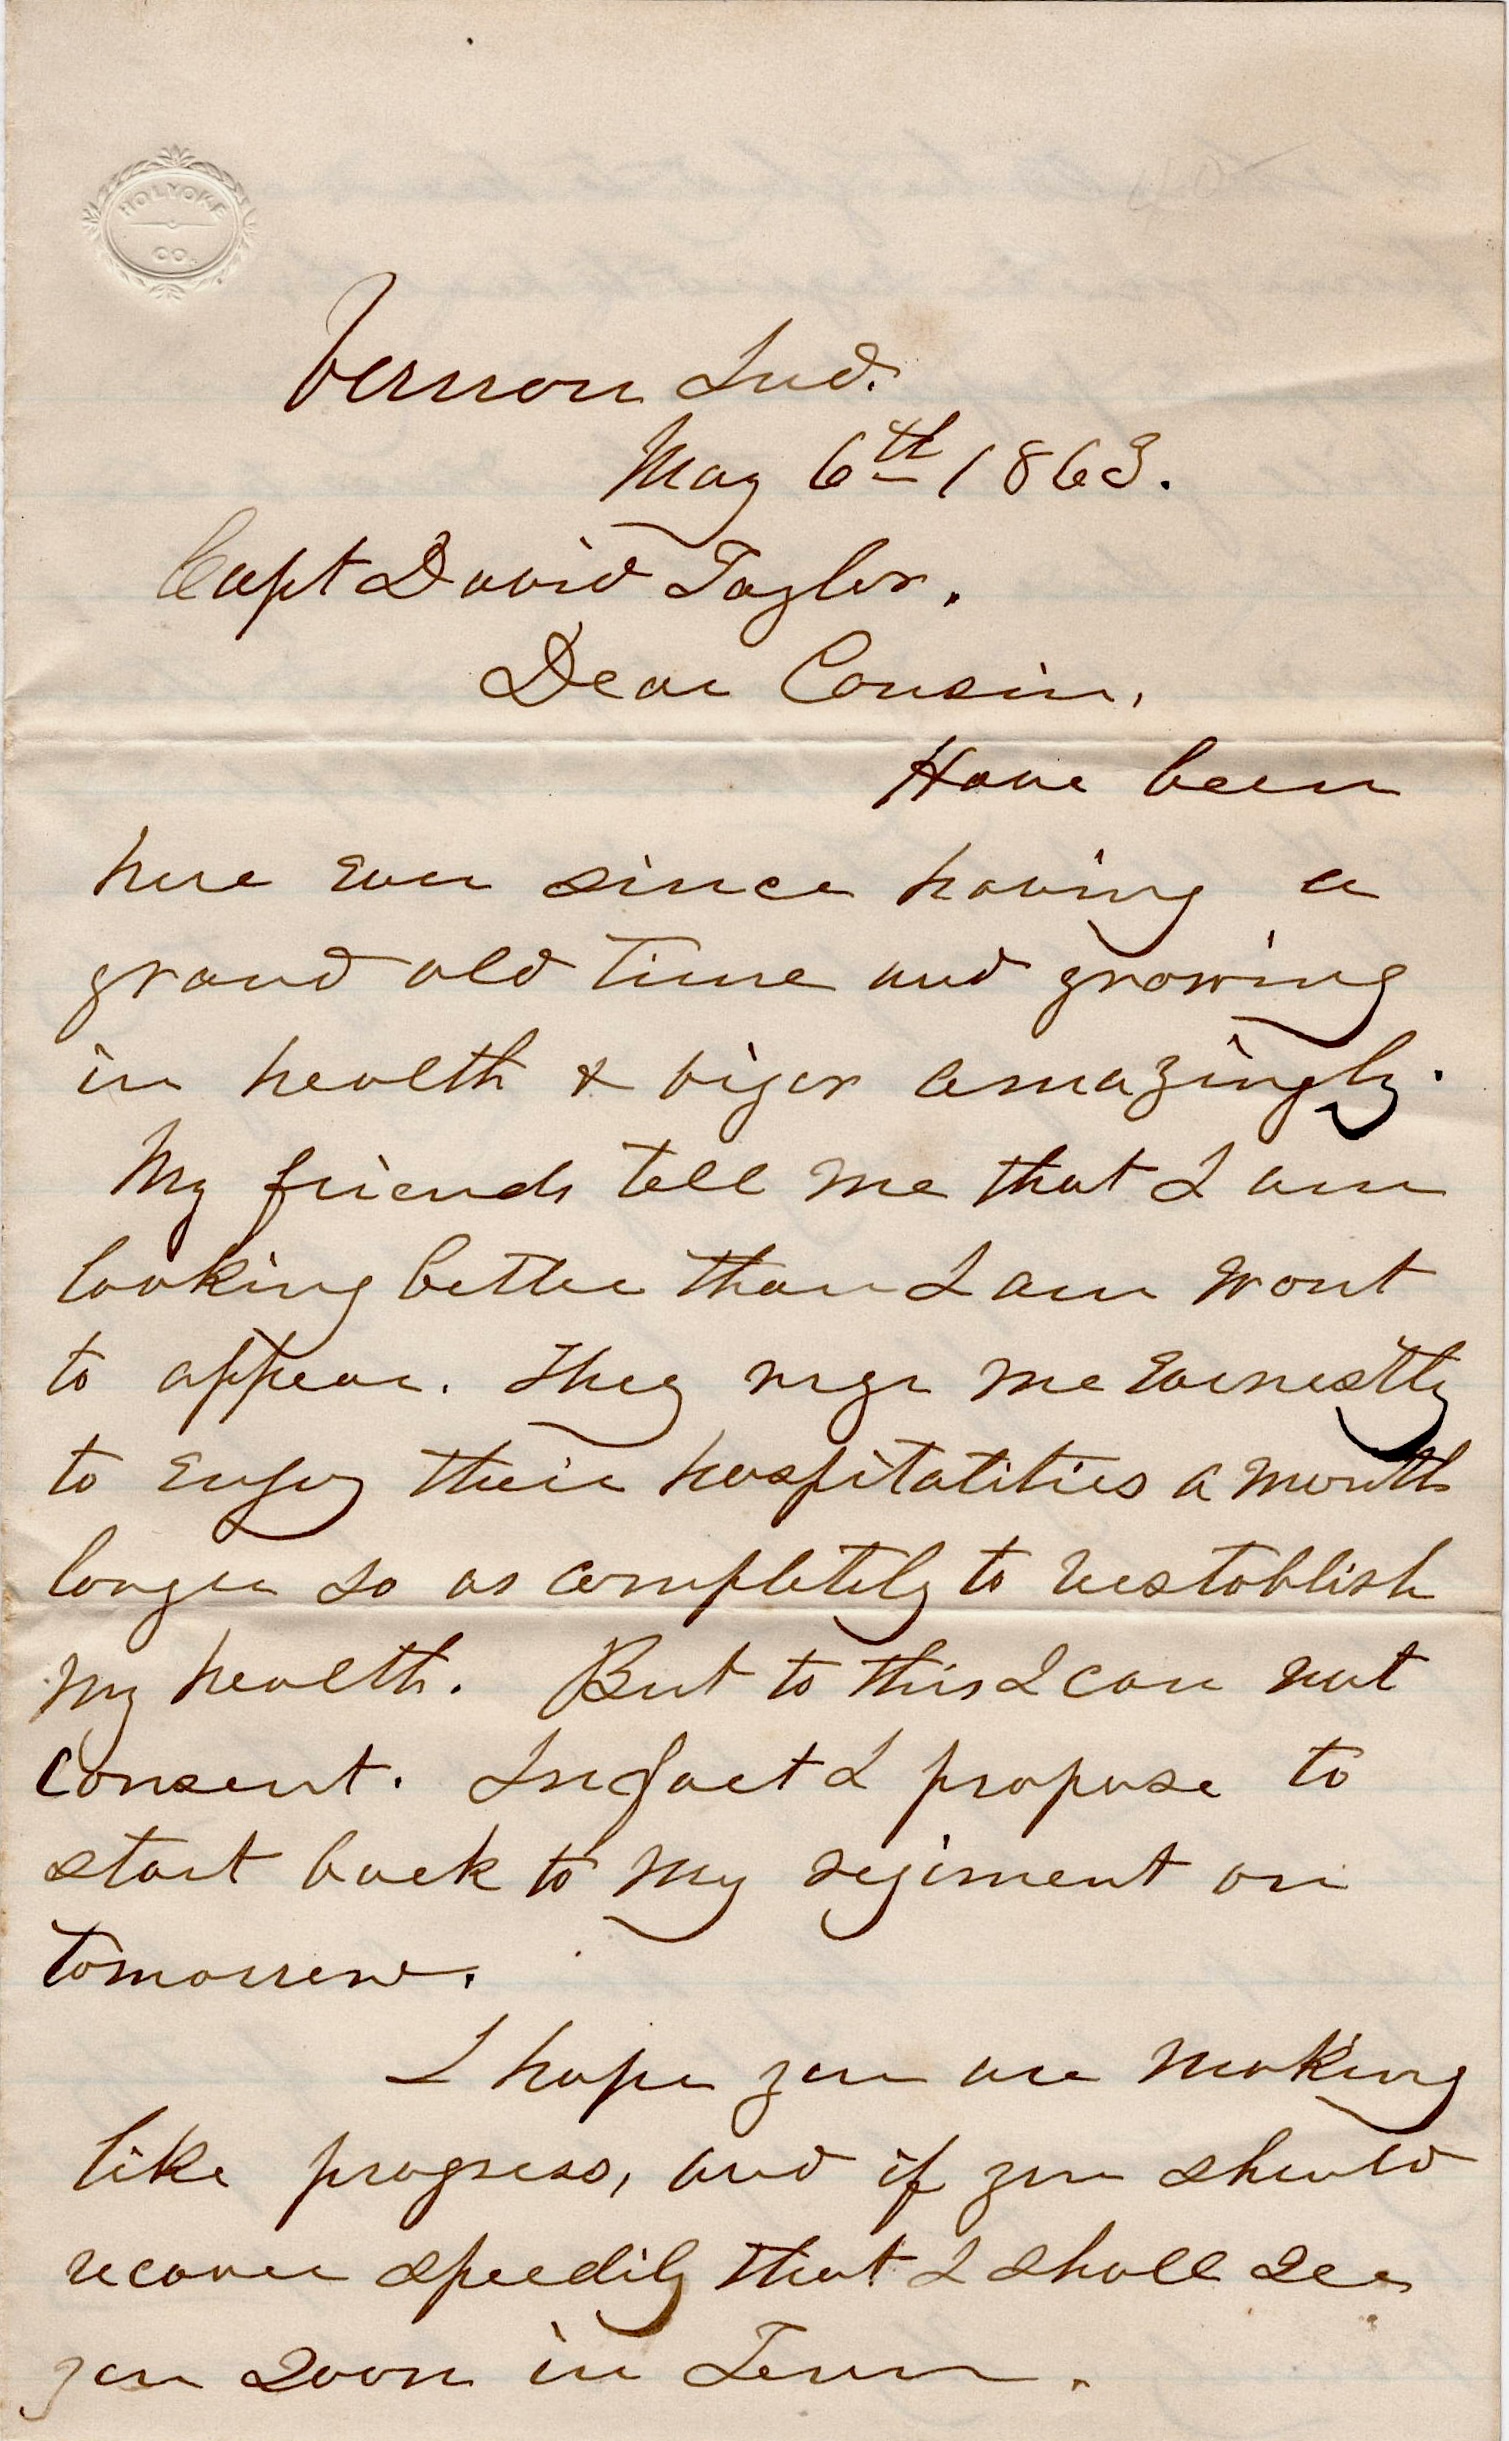 HOLYOKE
CO.
Vernon Ind.
May 6th 1863.
Capt David Taylor.
Dear Cousin,
Have been
here ever since having a
grand old time and growing
in health & vigor amazingly.
My friends tell me that I am
looking better than I am wont
to appear. They urge me earnestly
to enjoy their hospitalities a month
longer so as completely to reestablish
my health. But to this I can not
consent. In fact I propose to
start back to my regiment on
tomorrow.
I hope you are making
like progress, and if you should
recover speedily that I shall see
you soon in Tenn.